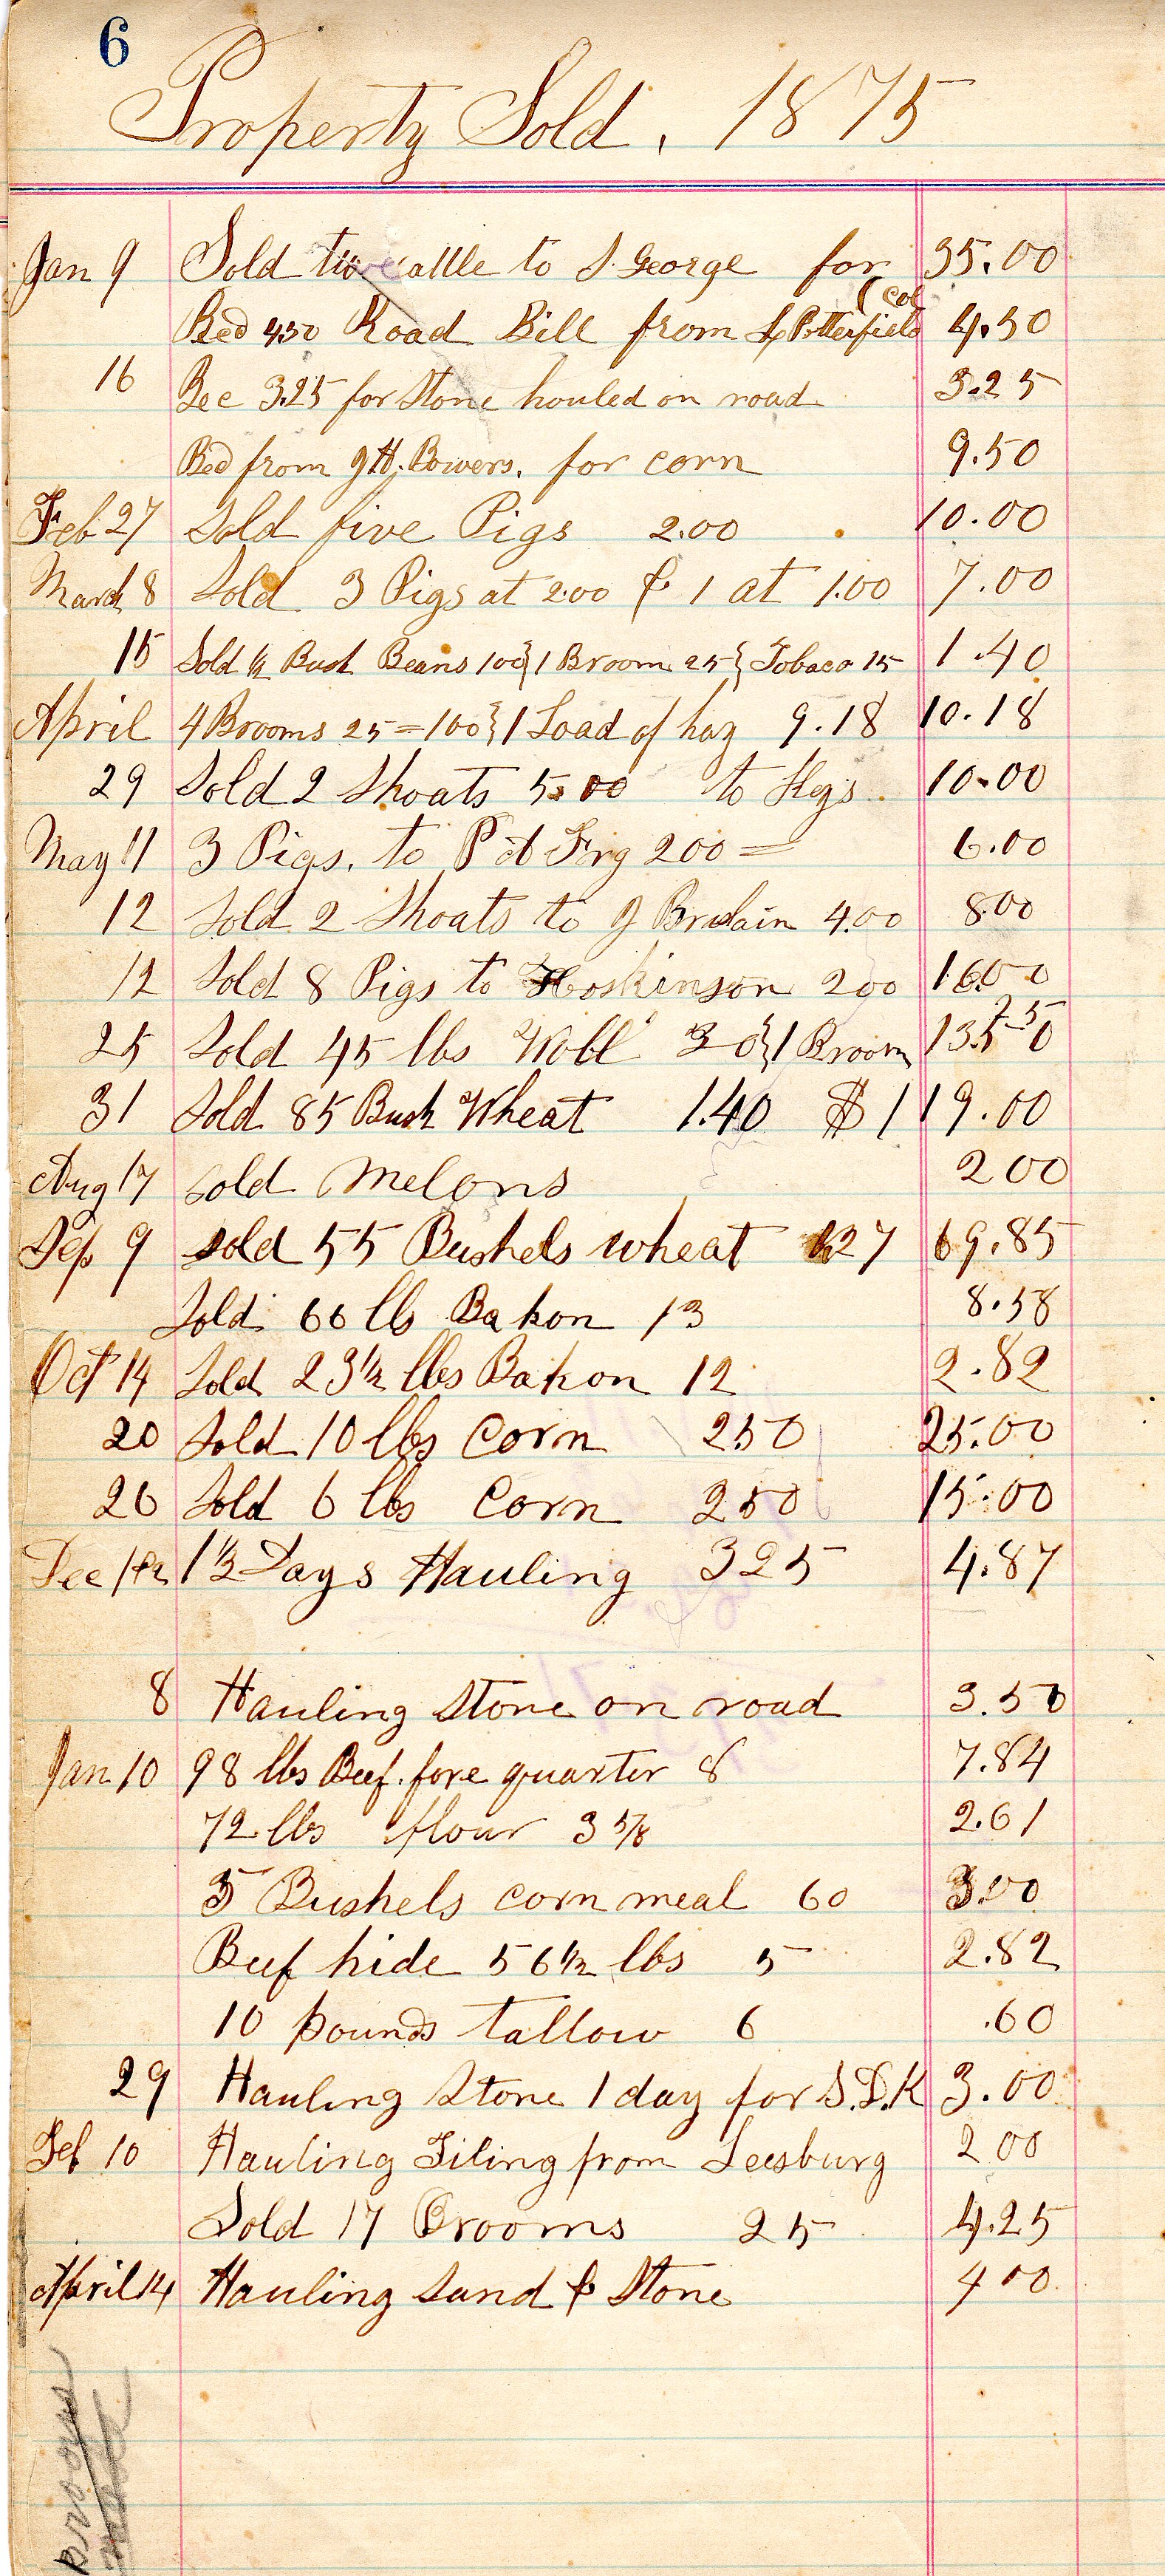 6
Property Sold. 1875
Jan 9 Sold two cattle to S. George for 35.00
(Col
Recd 4,50 Road Bill from L Potterfield 4.50
16 Rec 3.25 for Stone houled on road 3.25
Recd from J H. Bowers. for corn 9.50
Feb 27 Sold five Pigs 2.00 10.00
March 8 Sold 3 Pigs at 2.00 & 1 at 1.00 7.00
15 Sold ½ Bush Beans 100 } 1 Broom 25 } Tobaco 15 1.40
April 4 Brooms 25 = 100 } 1 Load of hay 9.18 10.18
29 Sold 2 Shoats 5.00 to 10.00
May 11 3 Pigs. to 200 = 6.00
12 Sold 2 Shoats to J 4.00 8.00
12 Sold 8 Pigs to Hoskinson 200 16.00
25
25 Sold 45 lbs Wool 30 } 1 Broom 13.50
31 Sold 85 Bush Wheat 1.40 $119.00
Aug 17 sold Melons 2 00
Sep 9 sold 55 Bushels wheat 127 69.85
Sold 66 lb Bakon 13 8.58
Oct 14 Sold 23½ lbs Bakon 12 2.82
20 Sold 10 lbs corn 250 25.00
26 Sold 6 lbs Corn 250 15.00
Dec 1½ Days Hauling 325 4.87
8 Hauling Stone on road 3.50
Jan 10 98 lbs Beef. fore quarter 8 7.84
72 lbs flour 3 5/8 2.61
5 Bushels corn meal 60 3.00
Beef hide 56½ lbs 5 2.82
10 pounds tallow 6 .60
29 Hauling Stone 1 day for S.D.K 3.00
Feb 10 Hauling Tiling from Leesburg 2 00
Sold 17 Brooms 25 4.25
April 14 Hauling Sand & Stone 4 00